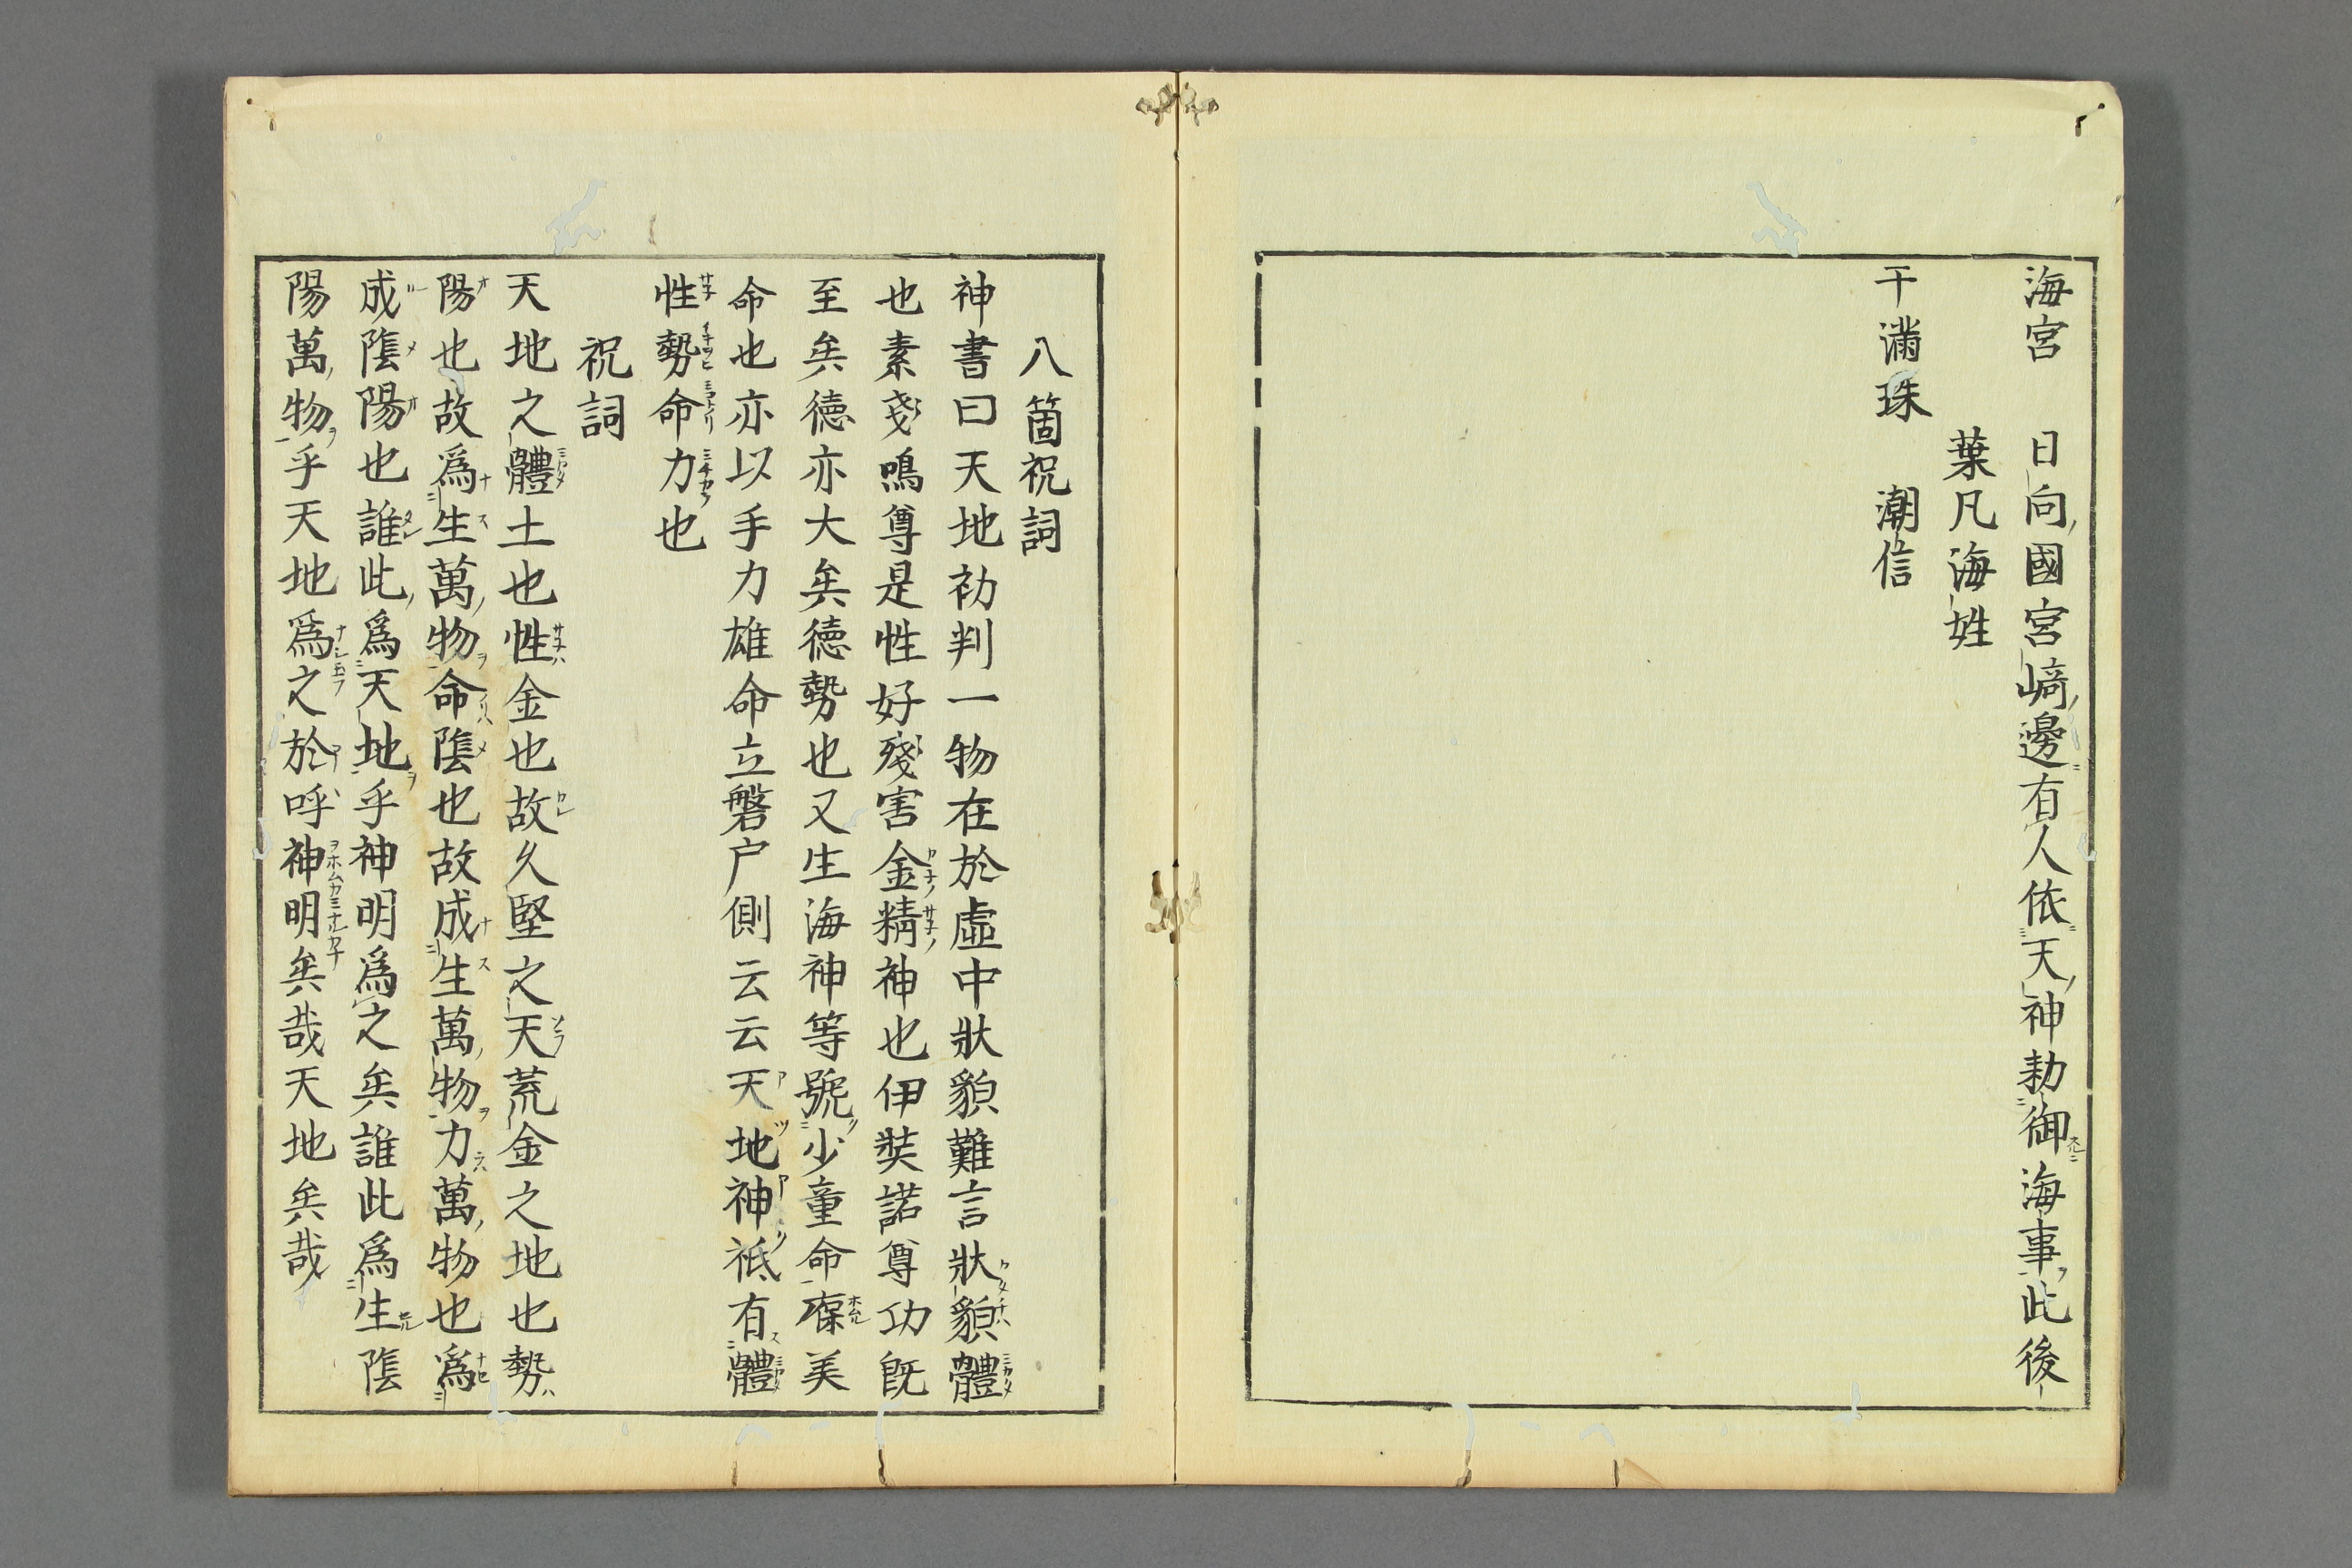 海宮　日向國宮﨑邊有人依天神勅御海事此後
葉凡海姓
干滿珠　潮信
八箇祝詞
神書曰天地初判一物在於虛中狀貌難言狀貌體
也素戔鳴尊是性好殘害金精神也伊奘諾尊功旣
至矣德亦大矣德勢也又生海神等號少童命葆美
命也亦以手力雄命立磐戸側云云天地神祇有體
性勢命力也
祝詞
天地之體土也性金也故久堅之天荒金之地也勢
陽也故爲生萬物命陰也故成生萬物力萬物也爲
成陰陽也誰此爲天地乎神明爲之矣誰此爲生陰
陽萬物乎天地爲之於呼神明矣哉天地矣哉